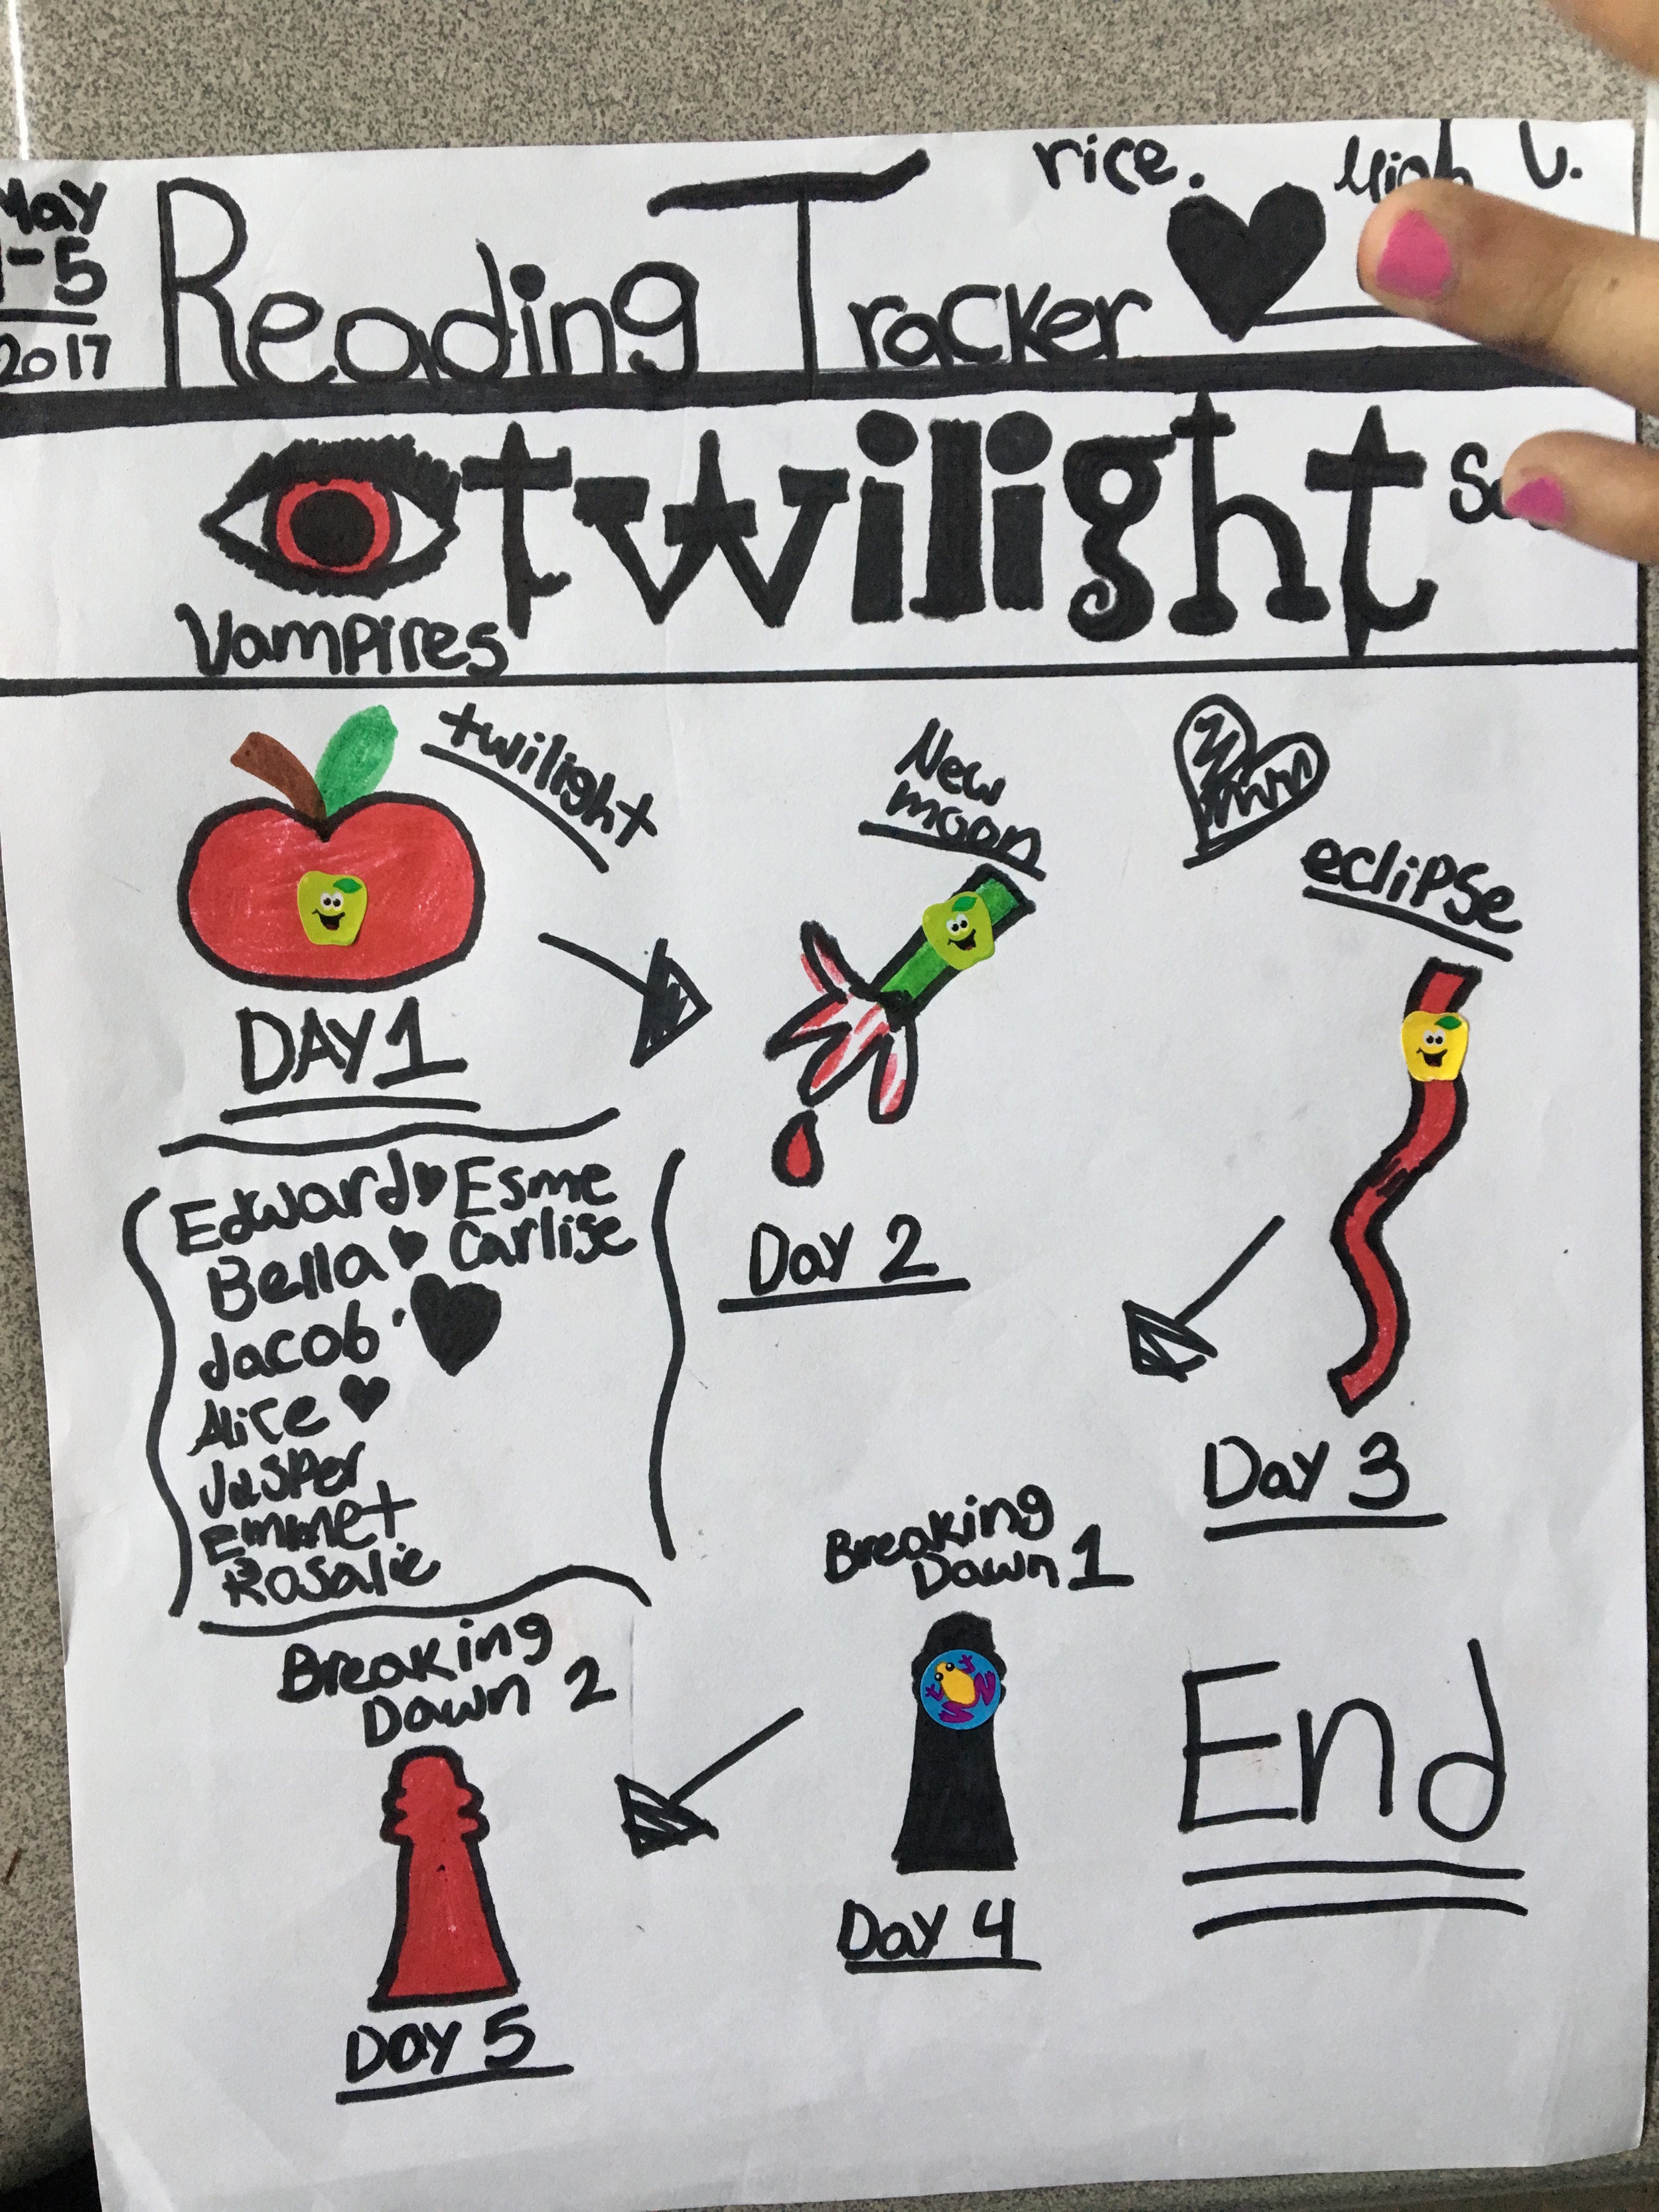 May
-5
2017
Reading Tracker
rice.
V.
twilight
Vampires
twilight
New
moon
eclipse
DAY 1
Day 2
Day 3
Edward Esme
Bella Carlise
Jacob
Alice
Jasper
Emmet
Rosalie
Breaking
Dawn 1
Day 4
Breaking
Dawn 2
Day 5
End